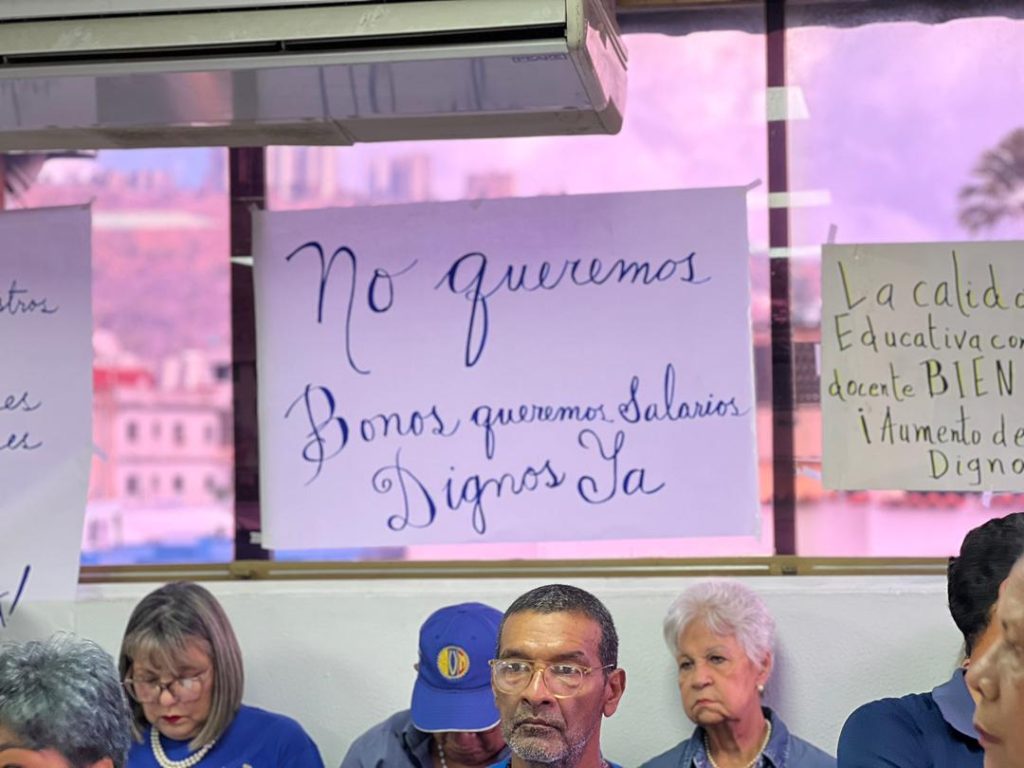 No queremos
Bonos queremos Salarios
Dignos Ya
La calid
Educativa con
docente BIEN
¡Aumento de
Digno